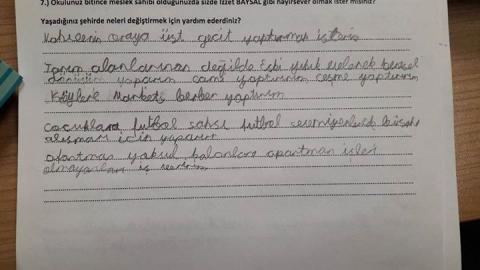 7.) Okulunuz bitince meslek sahibi olduğunuzda sizde İzzet BAYSAL gibi hayırsever olmak ister misiniz?
Yaşadığınız şehirde neleri değiştirmek için yardım ederdiniz?
araya üst geçit yaptırmak isterim
Tarım alanlarının değilde Eski yıkık evlerde kentsel
dönüşüm yaparım cami yaptırırım çeşme yaptırırım
Köylere Market berber yaptırırım
Çocuklara futbol sahsı futbol
alışması için yaparım
apartman yoksul kalanlara apartman işleri
olmayanlara iş veririm